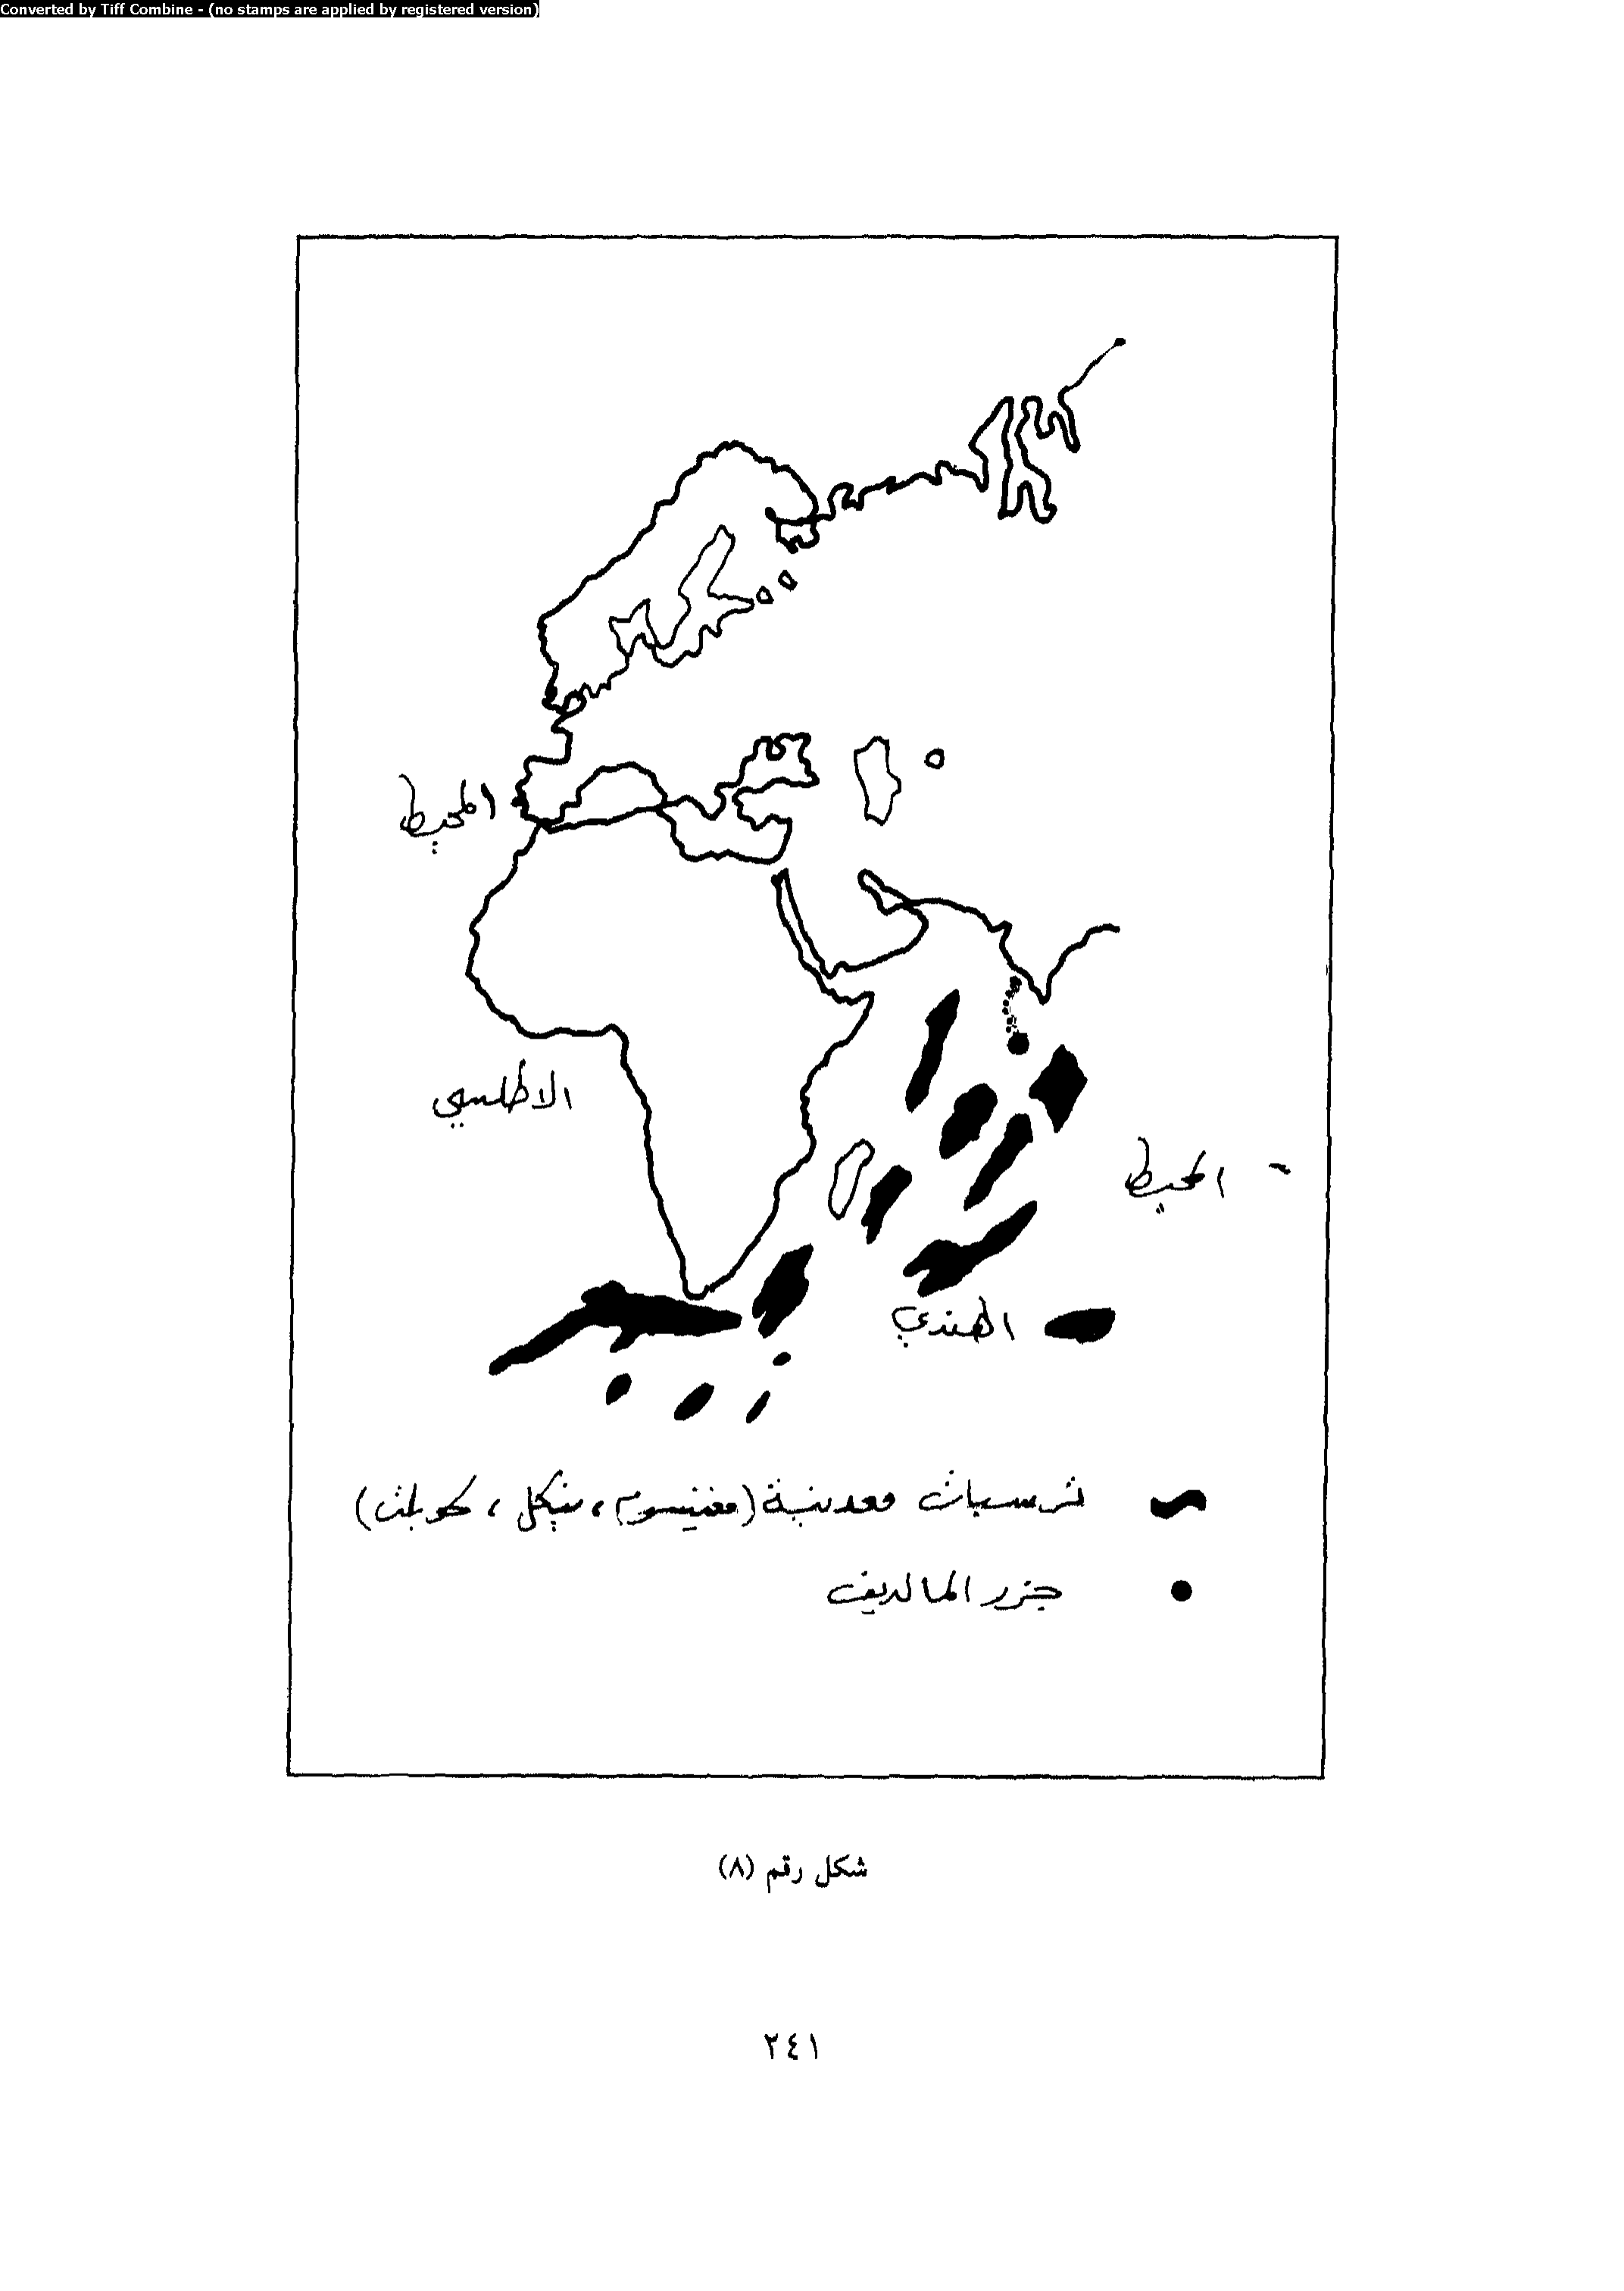 Converted by Tiff Combine - (no stamps are applied by registered version)
المحيط
الاطلسي
المحيط
الهندي
ترسبات معدنية (مغنيسوم، نيكل، كوبلت)
جزر المالديف
شكل رقم (٨)
٢٤١